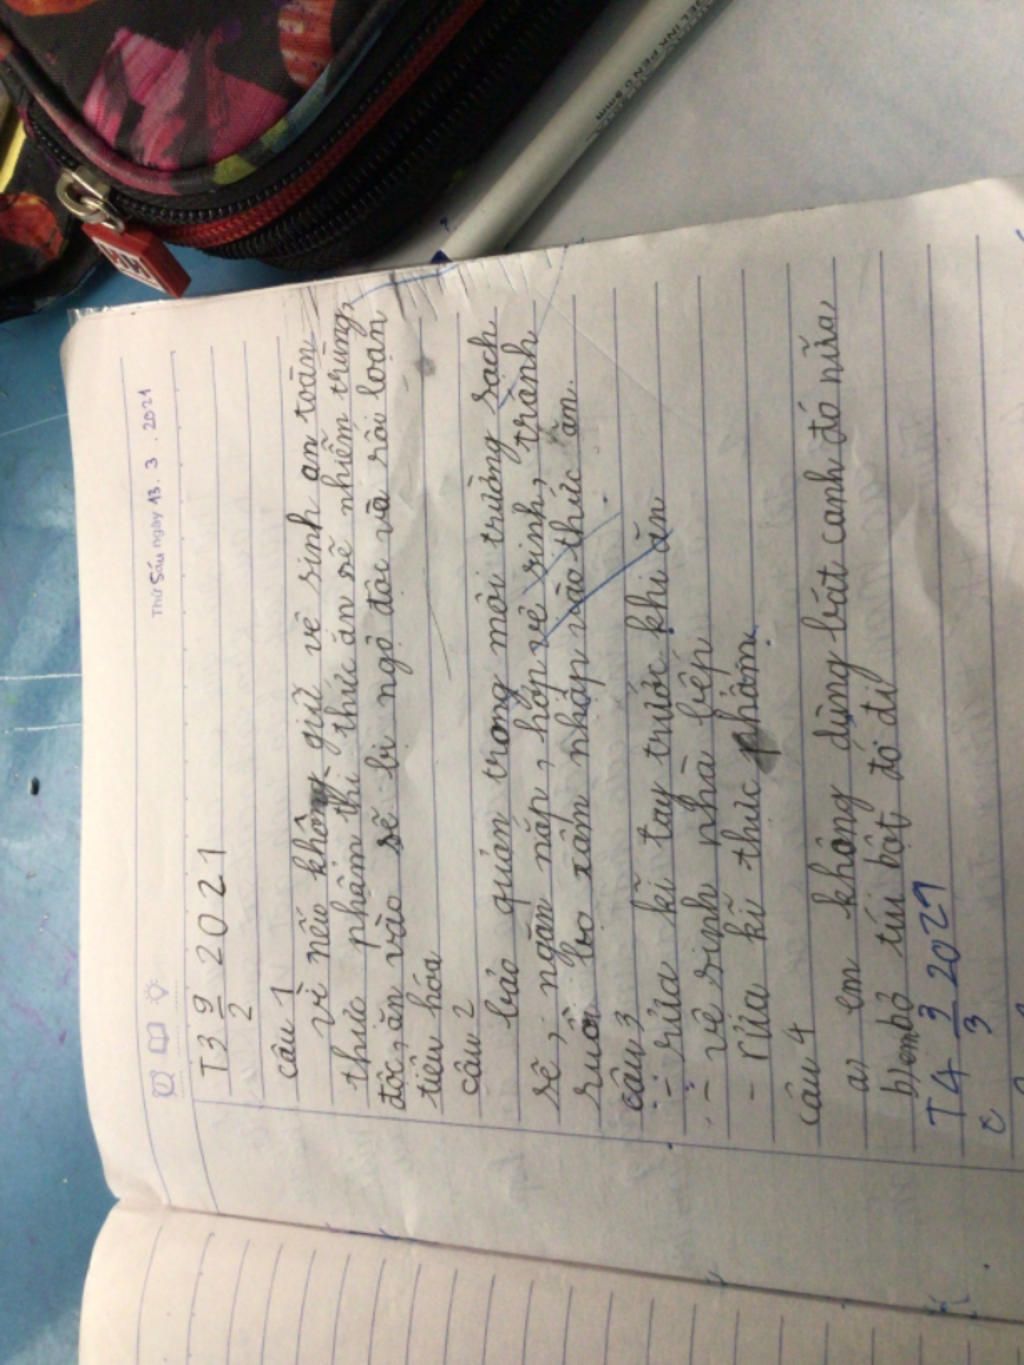 Thứ Sáu ngày 13 . 3 . 2021
T3 9/2 2021
câu 1
vì nếu không giữ vê sinh an toàn
thưc phậm thì thức ăn sẽ nhiễm trùng,
đôc, ăn vào sẽ bi ngộ đôc và rối loạn
tiêu hóa
câu 2
bảo quản trong môi trường sạch
sẽ, ngăn nắp, hợp vê sinh, tránh
ruồi bo xâm nhập vào thức ăn.
câu 3
- rửa kĩ tay trước khi ăn
- vê sinh nhà bếp
- rửa kĩ thưc phậm
câu 4
a) em không dùng bát canh đó nữa
b) em bỏ túi bột đó đi
T4 3/3 2021